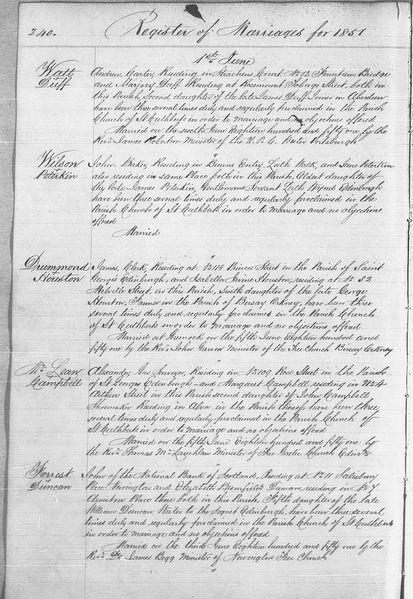 240. Register of Marriages for 1851
1st June
Watt
Duff
Andrew, Carter, Residing in Strachens Court No 12 Fountain Bridge
and Marjory Duff Residing at Rosemount Tobago Street, both in
this Parish, Second daughter of the late James Duff in Aberdeen
have been three several times duly and regularly proclaimed in the Parish
Church of St Cuthberts in order to marriage and no objections offered
Married on the Eighteen hundred and fifty one by the
Revd James Robertson Minister of the U. P. C. Portsburgh
Wilson
Peterkin
John, Baker, Residing in Entry, Leith Walk, and Jane Peterkin
also residing in same Place both in this Parish, Oldest daughter of
the late James Peterkin, Gentlemans Servant Leith Wynd Edinburgh
have been three several times duly and regularly proclaimed in the
Parish Church of St Cuthberts in order to marriage and no objections
offered
Married
Drummond
Houston
James, Clerk, Residing at No 118 Princes Street in the Parish of Saint
Georges Edinburgh, and Isabella Houston, residing at No 32
Melville Street, in this Parish, daughter of the late George
Houston, Farmer in the Parish of Birsay Orkney, have been three
several times duly and regularly proclaimed in the Parish Church
of St Cuthberts in order to marriage and no objections offered
Married at on the fifth June Eighteen hundred and
fifty one by the Revd John Minister of the Free Church Orkney
Mc Lean
Campbell
Alexander, Gas Surveyor, Residing in No 100 Rose Street in the Parish
of St Georges Edinburgh and Margaret Campbell residing in No 4
Arthur Street in this Parish second daughter of John Campbell,
Residing in Alva in the Parish thereof have been three
several times duly and regularly proclaimed in the Parish Church of
St Cuthberts in order to marriage and no objections offered
Married on the fifth June Eighteen hundred and fifty one by
the Revd Thomas Mc Lauchlan Minister of Free Gaelic Church Edinr
Forrest
Duncan
John of the National Bank of Scotland, Residing at No 11 Salisbury
Place Newington and Elizabeth Duncan residing in No 7
Place then both in this Parish. Fifth daughter of the late
William Duncan Writer to the Signet Edinburgh, have been three several
times duly and regularly proclaimed in the Parish Church of St Cuthberts
in order to marriage and no objections offered
Married on the third June Eighteen hundred and fifty one by the
Revd Dr James Begg Minister of Newington Free Church